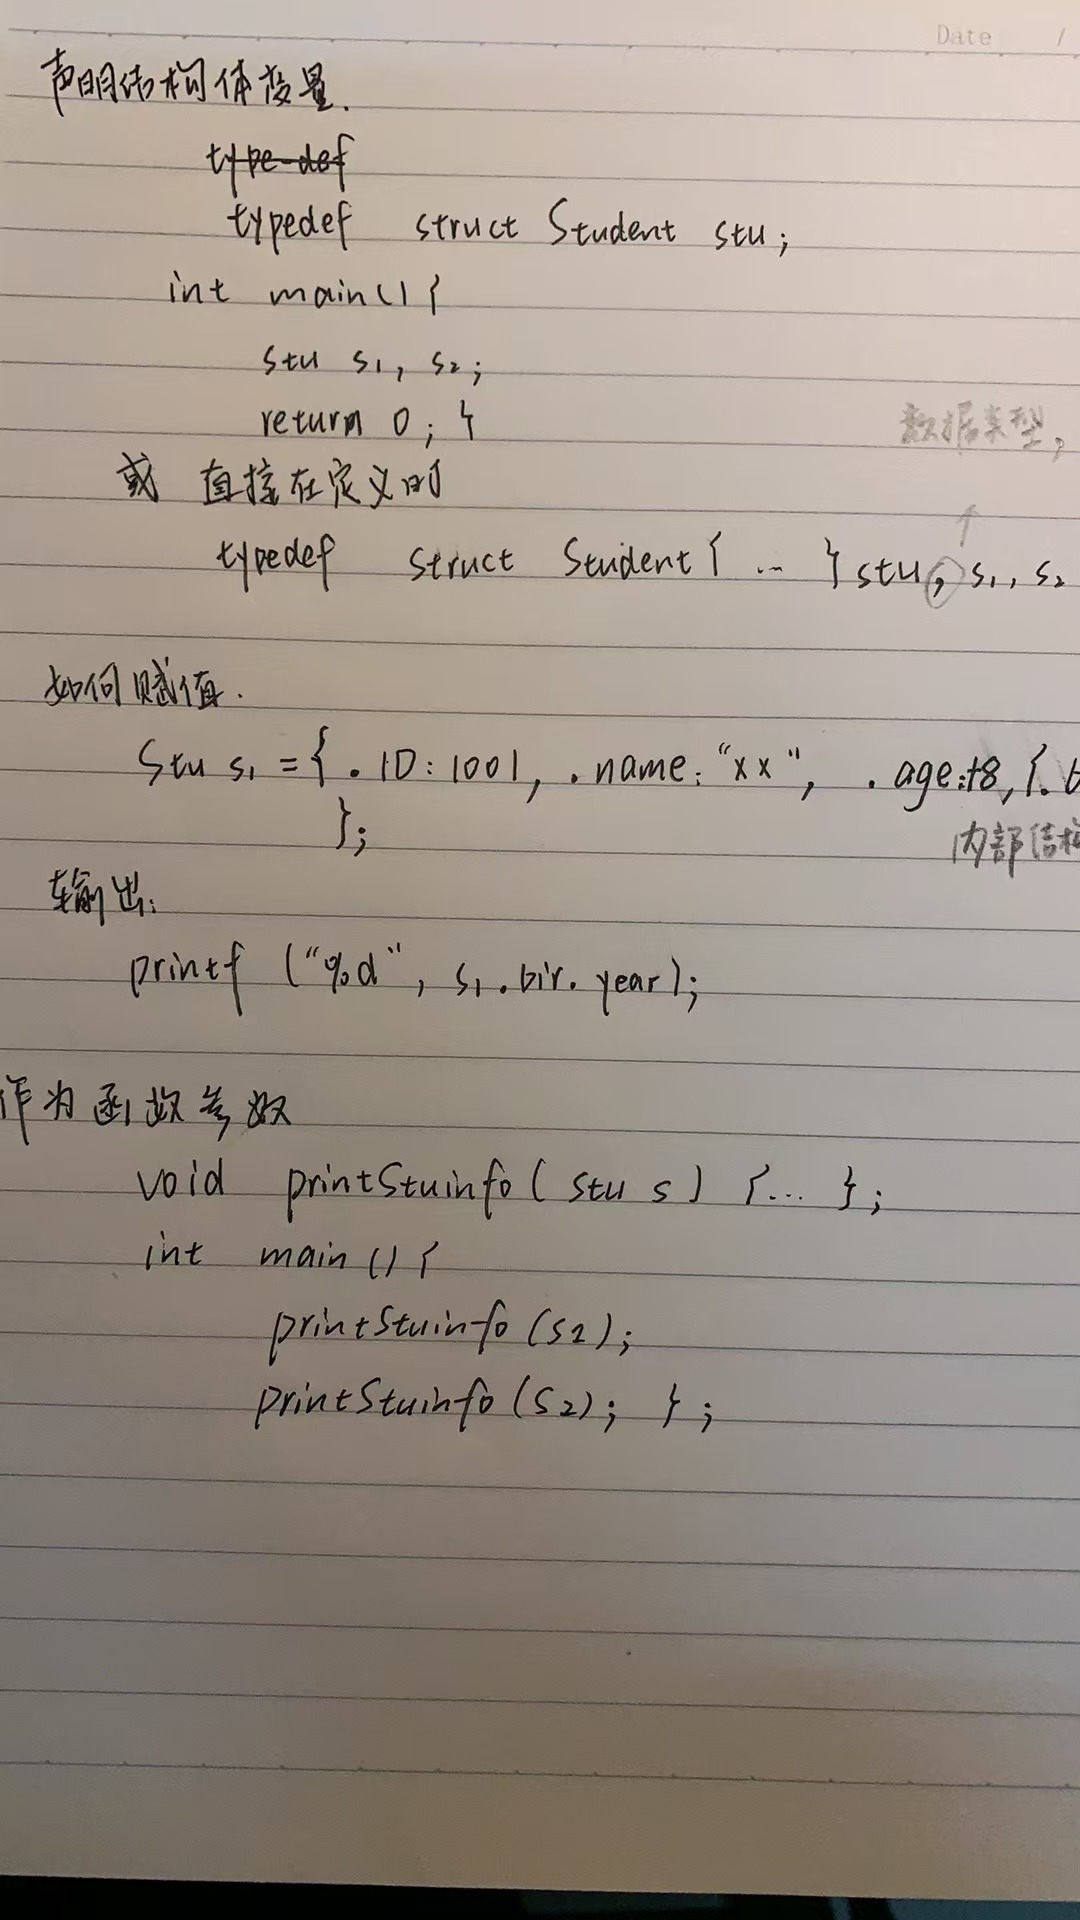 Date /
声明结构体变量.
type-def
typedef struct Student stu;
int main() {
stu s1, s2;
return 0; }
数据类型,
或 直接在定义时
typedef struct Student { … } stu, s1, s2
如何赋值.
Stu s1 = { . ID: 1001, . name: "xx", . age: 18, {. b
};
内部结构
输出:
printf ("%d", s1.bir.year);
作为函数参数
void printStuinfo( stu s) {... };
int main () {
printStuinfo (s2);
printStuinfo (s2); };